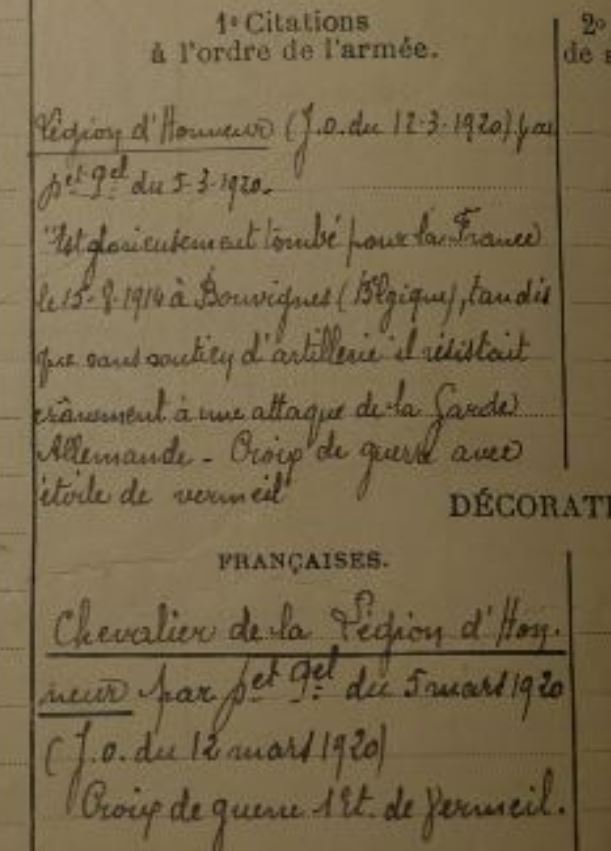 1º Citations
à l'ordre de l'armée.
2º
de s
Légion d'Honneur (J.O. du 12-3-1920) par
pet gel du 5-3-1920.
"Est glorieusement tombé pour la France
le 15-8-1914 à Bouvignes (Belgique), tandis
que sans soutien d'artillerie il résistait
crânement à une attaque de la Garde
Allemande - Croix de guerre avec
étoile de vermeil
DÉCORATI
FRANÇAISES.
Chevalier de la Légion d'Hon-
neur par pet gel du 5 mars 1920
(J.O. du 12 mars 1920)
Croix de guerre 1 Et. de Vermeil.